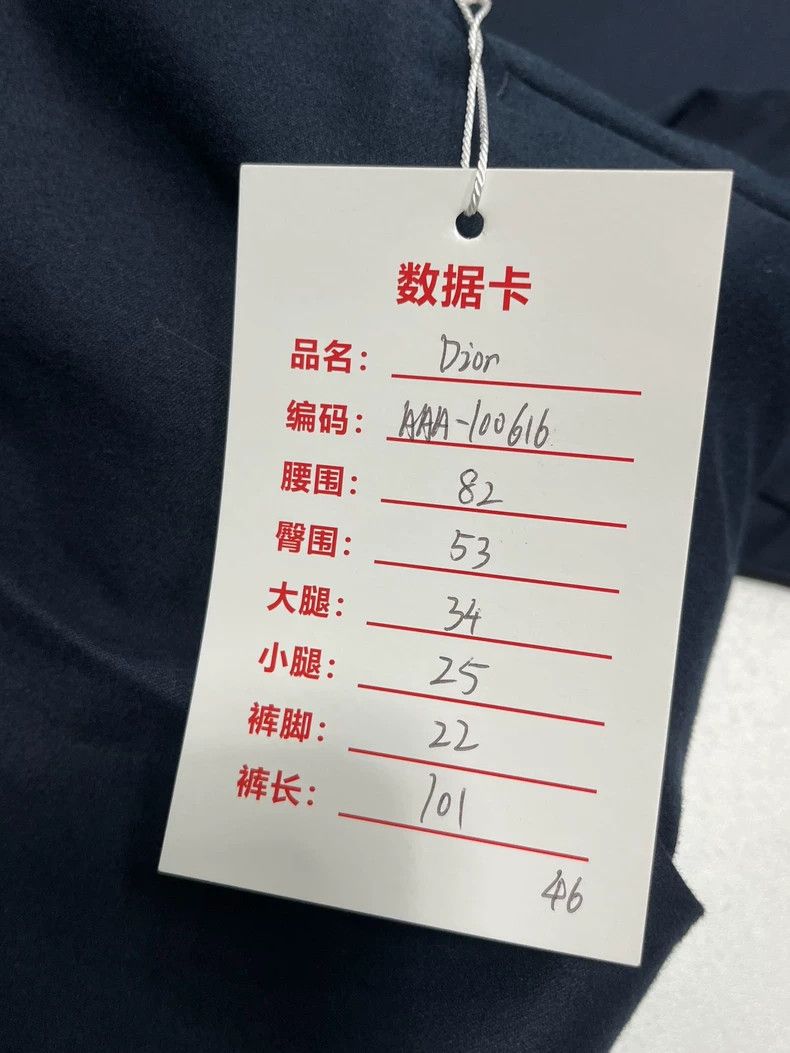 数据卡
品名： Dior
编码： AAA-100616
腰围： 82
臀围： 53
大腿： 34
小腿： 25
裤脚： 22
裤长： 101
46